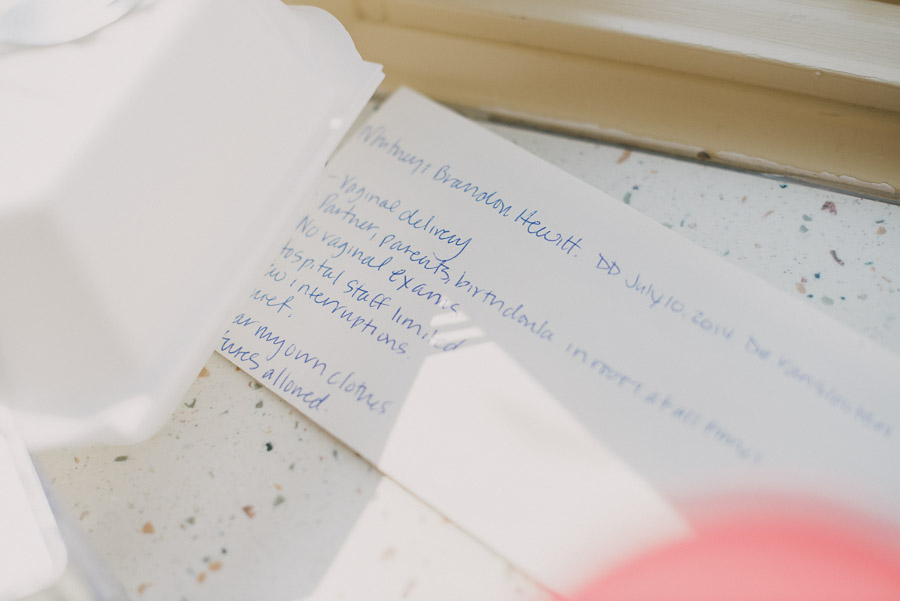 Whitney & Brandon Hewitt. DD July 10, 2014 Dr
- Vaginal delivery
Partner, parents, birthdoula in room at all times
No vaginal exams
Hospital staff limited
interruptions.
my own clothes
allowed